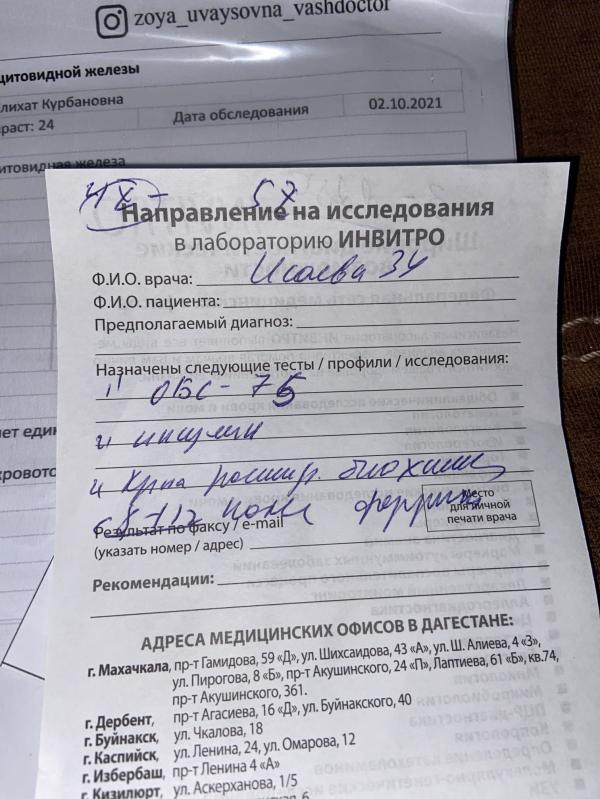 zoya_uvaysovna_vashdoctor
цитовидной железы
лихат Курбановна
раст: 24
Дата обследования
02.10.2021
итовидная железа
нет един
кровото
Направление на исследования
в лабораторию ИНВИТРО
Ф.И.О. врача: Исаева ЗУ
Ф.И.О. пациента:
Предполагаемый диагноз:
Назначены следующие тесты / профили / исследования:
ОБС - 75
инсулин
расшир. биохим
Результат по факсу / e-mail
(указать номер / адрес)
Место
для личной
печати врача
Рекомендации:
АДРЕСА МЕДИЦИНСКИХ ОФИСОВ В ДАГЕСТАНЕ:
г. Махачкала, пр-т Гамидова, 59 «Д», ул. Шихсаидова, 43 «А», ул. Ш. Алиева, 4 «З»,
ул. Пирогова, 8 «Б», пр-т Акушинского, 24 «П», Лаптиева, 61 «Б», кв.74,
пр-т Акушинского, 361.
г. Дербент, пр-т Агасиева, 16 «Д», ул. Буйнакского, 40
г. Буйнакск, ул. Чкалова, 18
г. Каспийск, ул. Ленина, 24, ул. Омарова, 12
г. Избербаш, пр-т Ленина 4 «А»
г. Кизилюрт, ул. Аскерханова, 1/5